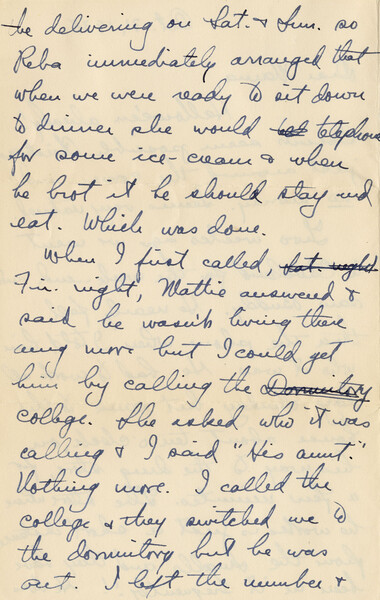 be delivering on Sat. & Sun. so
Reba immediately arranged that
when we were ready to sit down
to dinner she would telephone
for some ice-cream & when
he brot it he should stay and
eat. Which was done.
When I first called, Sat. night
Fri. night, Mattie answered &
said he wasn't living there
any more but I could get
him by calling the Dormitory
college. She asked who it was
calling & I said "His aunt."
Nothing more. I called the
college & they switched me to
the dormitory but he was
out. I left the number &